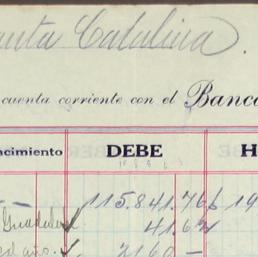 anta Catalina.
cuenta corriente con el Banco
ncimiento DEBE H
115.841.766 19
Guadalu 41.62
2160 -